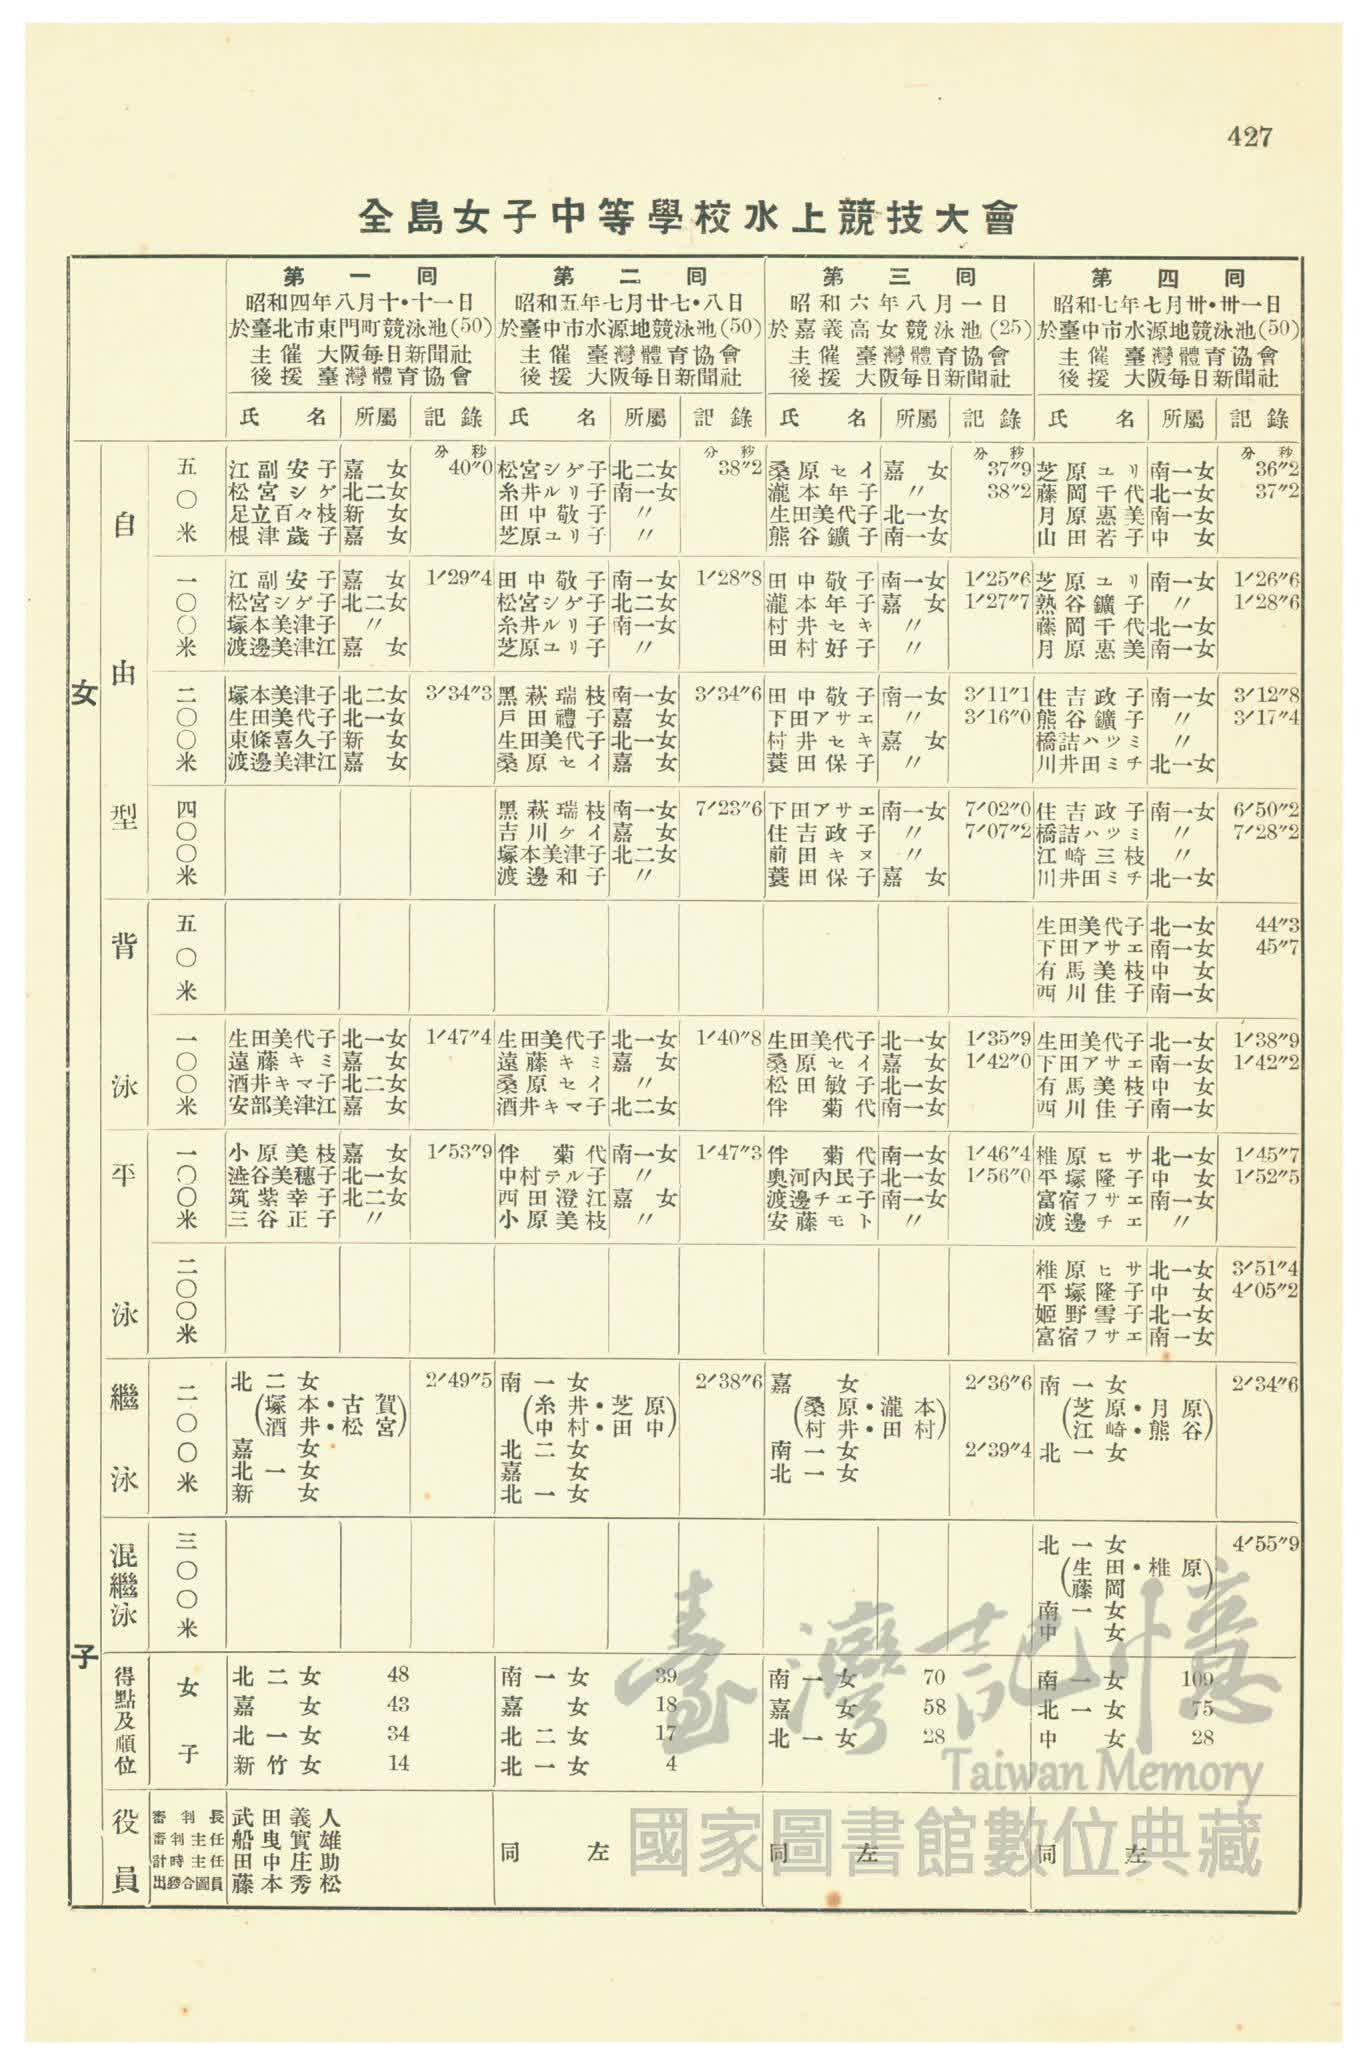 427
全島女子中等學校水上競技大會
第一囘 第二囘 第三囘 第四囘
昭和四年八月十•十一日 昭和五年七月廿七•八日 昭和六年八月一日 昭和七年七月卅•卅一日
於臺北市東門町競泳池(50) 於臺中市水源地競泳池(50) 於嘉義高女競泳池(25) 於臺中市水源地競泳池(50)
主催 大阪每日新聞社 主催 臺灣體育協會 主催 臺灣體育協會 主催 臺灣體育協會
後援 臺灣體育協會 後援 大阪每日新聞社 後援 大阪每日新聞社 後援 大阪每日新聞社
氏名 所屬 記錄 氏名 所屬 記錄 氏名 所屬 記錄 氏名 所屬 記錄
分秒 分秒 分秒 分秒
女子
自由型
五〇米
江副安子 嘉女 40″0 松宮シゲ子 北二女 38″2 桑原セイ 嘉女 37″9 芝原ユリ 南一女 36″2
松宮シゲ 北二女 糸井ルリ子 南一女 瀧本年子 〃 38″2 藤岡千代 北一女 37″2
足立百々枝 新女 田中敬子 〃 生田美代子 北一女 月原惠美 南一女
根津歲子 嘉女 芝原ユリ子 〃 熊谷鑛子 南一女 山田若子 中女
一〇〇米
江副安子 嘉女 1′29″4 田中敬子 南一女 1′28″8 田中敬子 南一女 1′25″6 芝原ユリ 南一女 1′26″6
松宮シゲ子 北二女 松宮シゲ子 北二女 瀧本年子 嘉女 1′27″7 熟谷鑛子 〃 1′28″6
塚本美津子 〃 糸井ルリ子 南一女 村井セキ 〃 藤岡千代 北一女
渡邊美津江 嘉女 芝原ユリ子 〃 田村好子 〃 月原惠美 南一女
二〇〇米
塚本美津子 北二女 3′34″3 黑萩瑞枝 南一女 3′34″6 田中敬子 南一女 3′11″1 住吉政子 南一女 3′12″8
生田美代子 北一女 戶田禮子 嘉女 下田アサエ 〃 3′16″0 熊谷鑛子 〃 3′17″4
東條喜久子 新女 生田美代子 北一女 村井セキ 嘉女 橋詰ハツミ 〃
渡邊美津江 嘉女 桑原セイ 嘉女 蓑田保子 〃 川井田ミチ 北一女
四〇〇米
黑萩瑞枝 南一女 7′23″6 下田アサエ 南一女 7′02″0 住吉政子 南一女 6′50″2
吉川ケイ 嘉女 住吉政子 〃 7′07″2 橋詰ハツミ 〃 7′28″2
塚本美津子 北二女 前田キヌ 〃 江崎三枝 〃
渡邊和子 〃 蓑田保子 嘉女 川井田ミチ 北一女
背泳
五〇米
生田美代子 北一女 44″3
下田アサエ 南一女 45″7
有馬美枝 中女
西川佳子 南一女
一〇〇米
生田美代子 北一女 1′47″4 生田美代子 北一女 1′40″8 生田美代子 北一女 1′35″9 生田美代子 北一女 1′38″9
遠藤キミ 嘉女 遠藤キミ 嘉女 桑原セイ 嘉女 1′42″0 下田アサエ 南一女 1′42″2
酒井キマ子 北二女 桑原セイ 〃 松田敏子 北一女 有馬美枝 中女
安部美津江 嘉女 酒井キマ子 北二女 伴菊代 南一女 西川佳子 南一女
平泳
一〇〇米
小原美枝 嘉女 1′53″9 伴菊代 南一女 1′47″3 伴菊代 南一女 1′46″4 椎原ヒサ 北一女 1′45″7
澁谷美穗子 北一女 中村テル子 〃 奧河內民子 北一女 1′56″0 平塚隆子 中女 1′52″5
筑紫幸子 北二女 西田澄江 嘉女 渡邊チエ子 南一女 富宿フサエ 南一女
三谷正子 〃 小原美枝 〃 安藤モト 〃 渡邊チエ 〃
二〇〇米
椎原ヒサ 北一女 3′51″4
平塚隆子 中女 4′05″2
姬野雪子 北一女
富宿フサエ 南一女
繼泳
二〇〇米
北二女 2′49″5 南一女 2′38″6 嘉女 2′36″6 南一女 2′34″6
(塚本•古賀 (糸井•芝原 (桑原•瀧本 (芝原•月原
酒井•松宮) 中村•田中) 村井•田村) 江崎•熊谷)
嘉女 北二女 南一女 2′39″4 北一女
北一女 嘉女 北一女
新女 北一女
混繼泳
三〇〇米
北一女 4′55″9
(生田•椎原
藤岡)
南一女
中女
得點及順位
女子
北二女 48 南一女 39 南一女 70 南一女 109
嘉女 43 嘉女 18 嘉女 58 北一女 75
北一女 34 北二女 17 北一女 28 中女 28
新竹女 14 北一女 4
役員
審判長 武田義人
審判主任 船曳實雄
計時主任 田中庄助
出發合圖員 藤本秀松
同左 同左 同左
臺灣記憶
Taiwan Memory
國家圖書館數位典藏